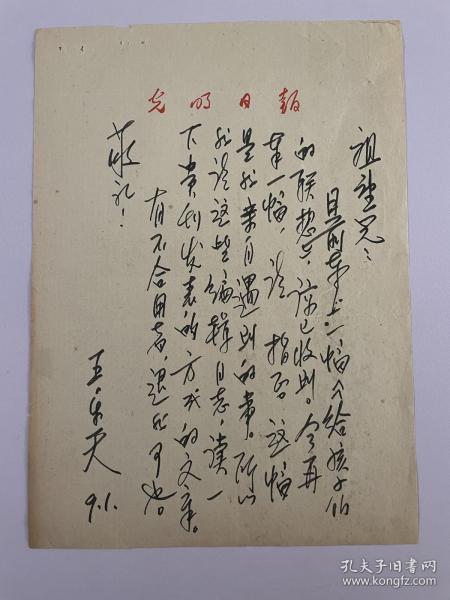 光明日报
祖望兄：
日前奉上一幅《给孩子们
的联想》，谅已收到。今再
寄一幅，请指正。这幅
是我亲自遇到的事。所以
我请这些编辑同志，读一
下贵刊发表的方成的文章。
有不合用者，退我可也。
敬礼！
王乐天
9.1.
孔夫子旧书网
www.kongfz.com